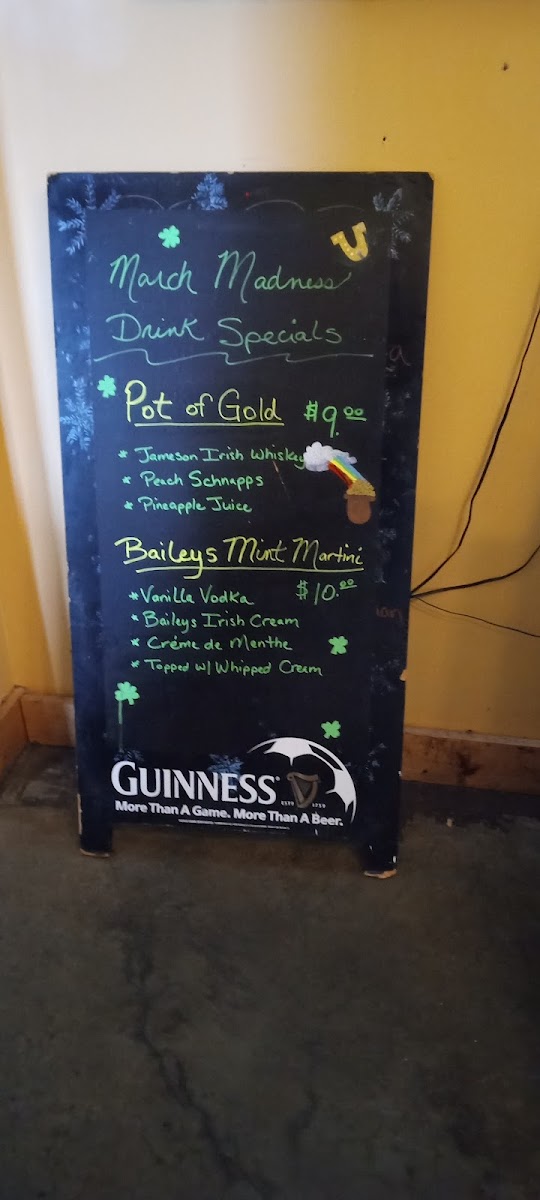 March Madness
Drink Specials
Pot of Gold $9.00
* Jameson Irish Whiskey
* Peach Schnapps
* Pineapple Juice
Baileys Mint Martini
$10.00
* Vanilla Vodka
* Baileys Irish Cream
* Créme de Menthe
* Topped w/ Whipped Cream
GUINNESS
ESTD 1759
More Than A Game. More Than A Beer.